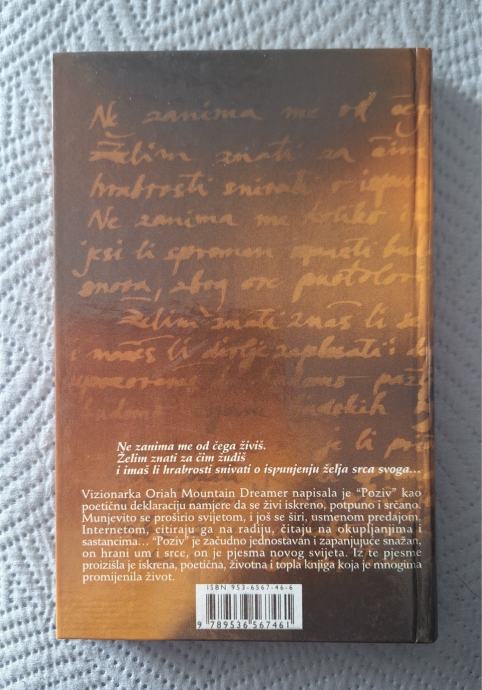 Ne zanima me od čega
Želim znati za čim
hrabrosti snivati o ispun
Ne zanima me koliko
jesi li spreman ispasti bu
snova, zbog ove pustolov
Želim znati znaš li se
i možeš li divlje zaplesati i do
budemo
ljudskih b
je li pr
Ne zanima me od čega živiš.
Želim znati za čim žudiš
i imaš li hrabrosti snivati o ispunjenju želja srca svoga...
Vizionarka Oriah Mountain Dreamer napisala je "Poziv" kao
poetičnu deklaraciju namjere da se živi iskreno, potpuno i srčano.
Munjevito se proširio svijetom, i još se širi, usmenom predajom,
Internetom, citiraju ga na radiju, čitaju na okupljanjima i
sastancima... "Poziv" je začudno jednostavan i zapanjujuće snažan,
on hrani um i srce, on je pjesma novog svijeta. Iz te pjesme
proizišla je iskrena, poetična, životna i topla knjiga koja je mnogima
promijenila život.
ISBN 953-6567-46-6
9 789536 567461